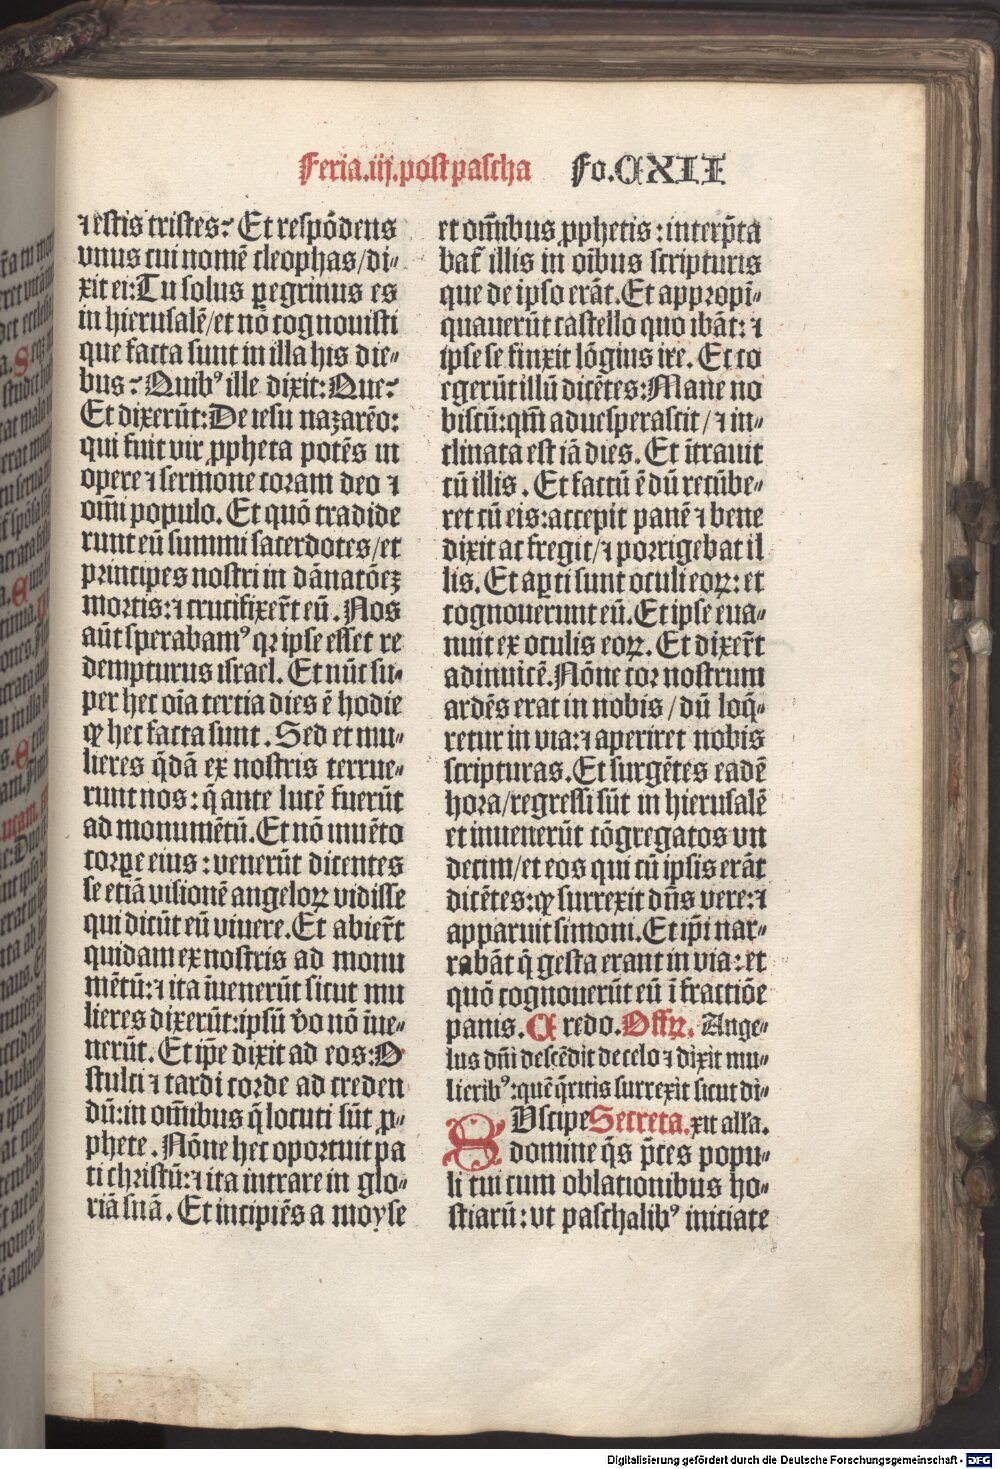 Feria.iij.post pascha Fo.CXII
⁊ estis tristes? Et respōdens
vnus cui nomē cleophas/di⸗
xit ei: Tu solus ꝑegrinus es
in hierusalē/et nō cognouisti
que facta sunt in illa his die⸗
bus? Quibꝰ ille dixit: Que?
Et dixerūt: De iesu nazarēo:
qui fuit vir ꝓpheta potēs in
opere ⁊ sermone coram deo ⁊
om̄i populo. Et quō tradide
runt eū summi sacerdotes/et
principes nostri in dānatōeꝫ
mortis: ⁊ crucifixer̄t eū. Nos
aūt sperabamꝰ qꝛ ipse esset re
dempturus israel. Et nūc su⸗
per hec oīa tertia dies ē hodie
ꝙ hec facta sunt. Sed et mu⸗
lieres q̄dā ex nostris terrue⸗
runt nos: q̄ ante lucē fuerūt
ad monumētū. Et nō inuēto
corꝑe eius: venerūt dicentes
se etiā visionē angeloꝝ vidisse
qui dicūt eū viuere. Et abier̄t
quidam ex nostris ad monu
mētū: ⁊ ita īuenerūt sicut mu
lieres dixerūt: ipsū v̄o nō īue⸗
nerūt. Et ip̄e dixit ad eos: O
stulti ⁊ tardi corde ad creden
dū: in om̄ibus q̄ locuti sūt ꝓ⸗
phete. Nōne hec oportuit pa
ti christū: ⁊ ita intrare in glo⸗
riā suā. Et incipiēs a moyse
et om̄ibus ꝓphetis: interp̄ta
bat̄ illis in oībus scripturis
que de ipso erāt. Et appropī⸗
quauerūt castello quo ibāt: ⁊
ipse se finxit lōgius ire. Et co
egerūt illū dicētes: Mane no
biscū: qm̄ aduesperascit/⁊ in⸗
clinata est iā dies. Et ītrauit
cū illis. Et factū ē dū recūbe⸗
ret cū eis: accepit panē ⁊ bene
dixit ac fregit/⁊ porrigebat il
lis. Et aꝑti sunt oculi eoꝝ: et
cognouerunt eū. Et ipse eua⸗
nuit ex oculis eoꝝ. Et dixer̄t
adinuicē. Nōne cor nostrum
ardēs erat in nobis/dū loq̄⸗
retur in via: ⁊ aperiret nobis
scripturas. Et surgētes eadē
hora/regressi sūt in hierusalē
et inuenerūt cōgregatos vn
decim/et eos qui cū ipsis erāt
dicētes: ꝙ surrexit dn̄s vere: ⁊
apparuit simoni. Et ip̄i nar⸗
rabāt q̄ gesta erant in via: et
quō cognouerūt eū ī fractiōe
panis. Credo. Offꝝ. Ange⸗
lus dn̄i descēdit de celo ⁊ dixit mu⸗
lieribꝰ: quē q̄ritis surrexit sicut di⸗
SVscipe Secreta. xit all'a.
domine q̄s p̄ces popu⸗
li tui cum oblationibus ho⸗
stiarū: vt paschalibꝰ initiate
Digitalisierung gefördert durch die Deutsche Forschungsgemeinschaft - DFG